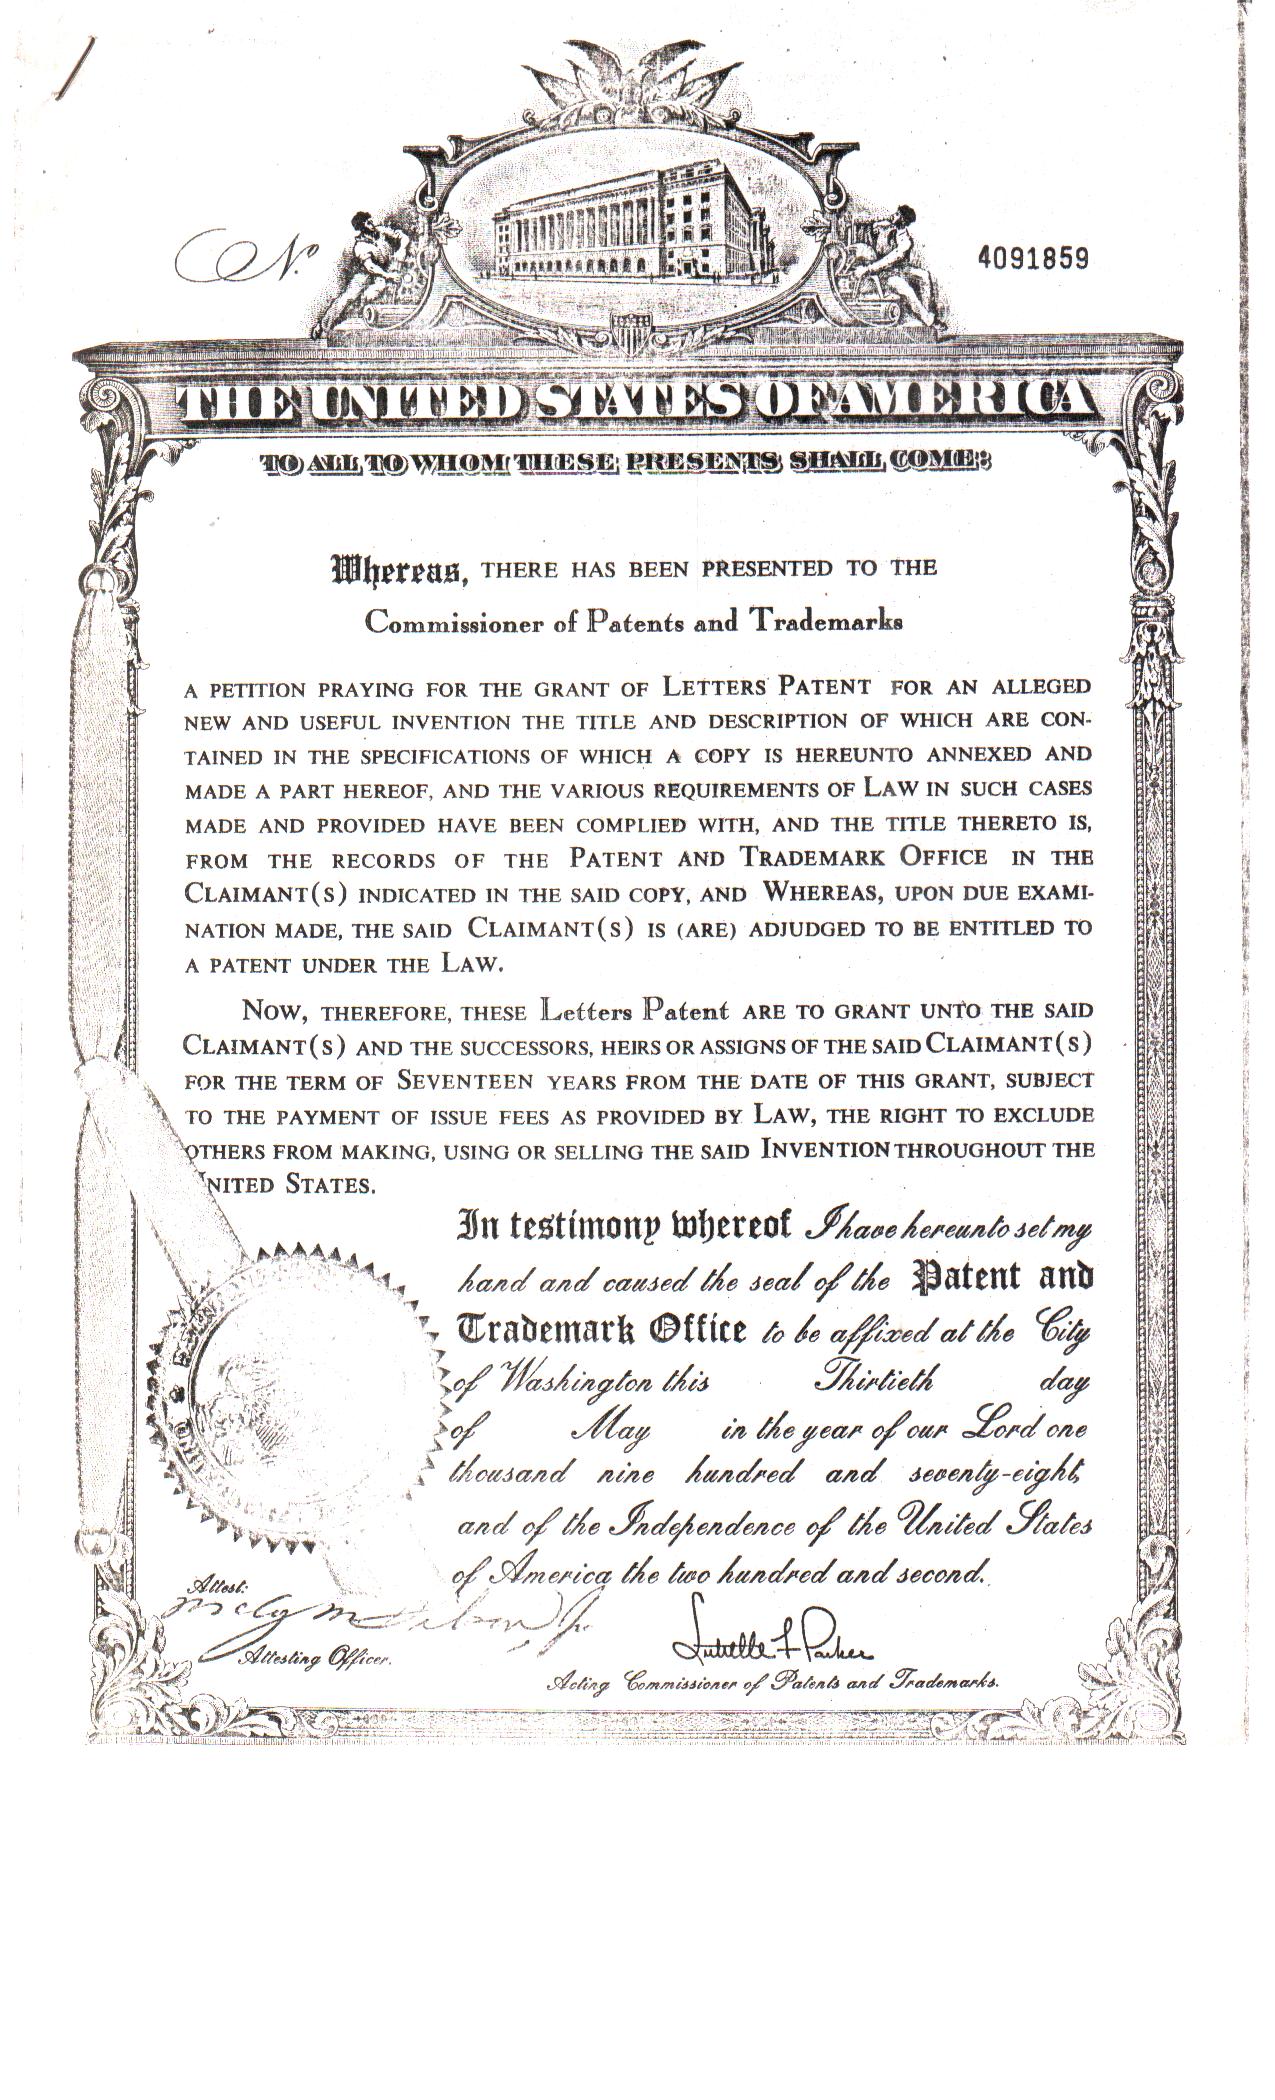 No. 4091859
THE UNITED STATES OF AMERICA
TO ALL TO WHOM THESE PRESENTS SHALL COME:
Whereas, THERE HAS BEEN PRESENTED TO THE
Commissioner of Patents and Trademarks
A PETITION PRAYING FOR THE GRANT OF LETTERS PATENT FOR AN ALLEGED
NEW AND USEFUL INVENTION THE TITLE AND DESCRIPTION OF WHICH ARE CON-
TAINED IN THE SPECIFICATIONS OF WHICH A COPY IS HEREUNTO ANNEXED AND
MADE A PART HEREOF, AND THE VARIOUS REQUIREMENTS OF LAW IN SUCH CASES
MADE AND PROVIDED HAVE BEEN COMPLIED WITH, AND THE TITLE THERETO IS,
FROM THE RECORDS OF THE PATENT AND TRADEMARK OFFICE IN THE
CLAIMANT(S) INDICATED IN THE SAID COPY, AND WHEREAS, UPON DUE EXAMI-
NATION MADE, THE SAID CLAIMANT(S) IS (ARE) ADJUDGED TO BE ENTITLED TO
A PATENT UNDER THE LAW.
NOW, THEREFORE, THESE Letters Patent ARE TO GRANT UNTO THE SAID
CLAIMANT(S) AND THE SUCCESSORS, HEIRS OR ASSIGNS OF THE SAID CLAIMANT(S)
FOR THE TERM OF SEVENTEEN YEARS FROM THE DATE OF THIS GRANT, SUBJECT
TO THE PAYMENT OF ISSUE FEES AS PROVIDED BY LAW, THE RIGHT TO EXCLUDE
OTHERS FROM MAKING, USING OR SELLING THE SAID INVENTION THROUGHOUT THE
UNITED STATES.
In testimony whereof I have hereunto set my
hand and caused the seal of the Patent and
Trademark Office to be affixed at the City
of Washington this Thirtieth day
of May in the year of our Lord one
thousand nine hundred and seventy-eight,
and of the Independence of the United States
of America the two hundred and second.
Attest:
Attesting Officer.
Lutrelle F. Parker
Acting Commissioner of Patents and Trademarks.